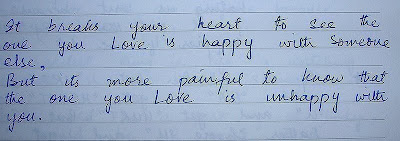 It breaks your heart to see the
one you Love is happy with Someone
else.
But its more painful to know that
the one you Love is unhappy with
you.